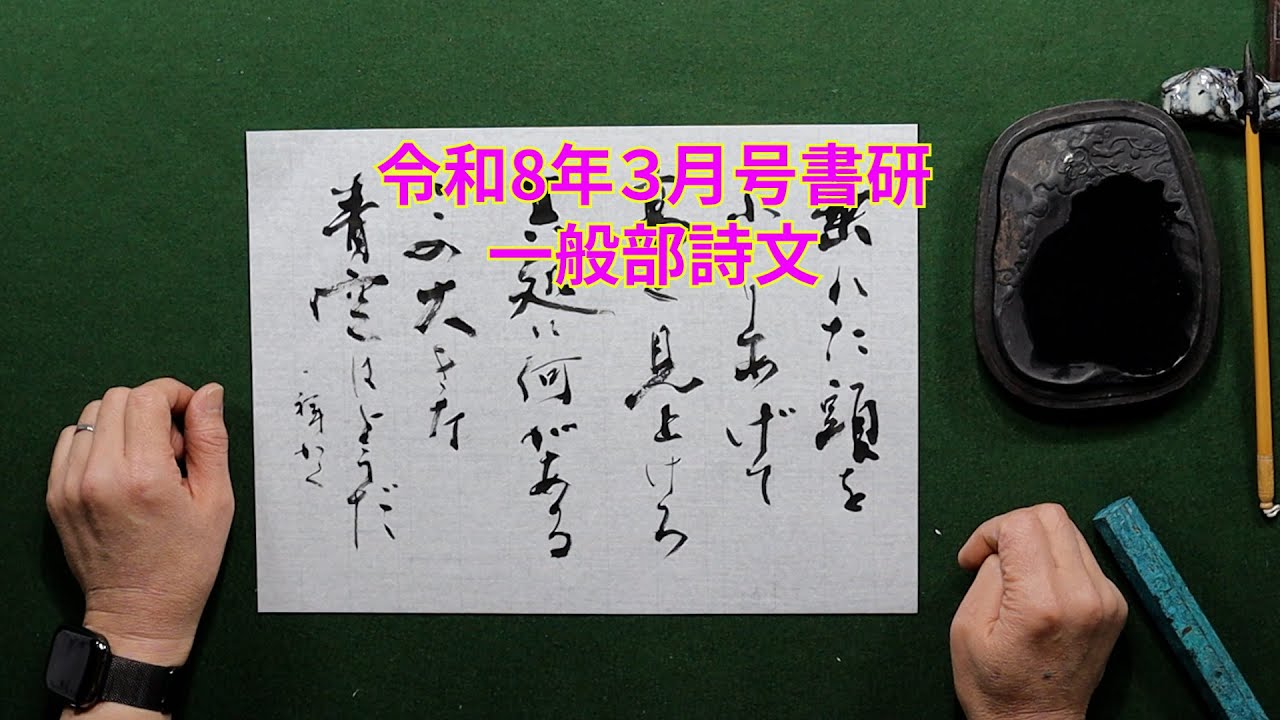 令和8年３月号書研
一般部詩文
垂れた頭を
りあげて
見上げろ
処に何がある
この大きな
青空はどうだ